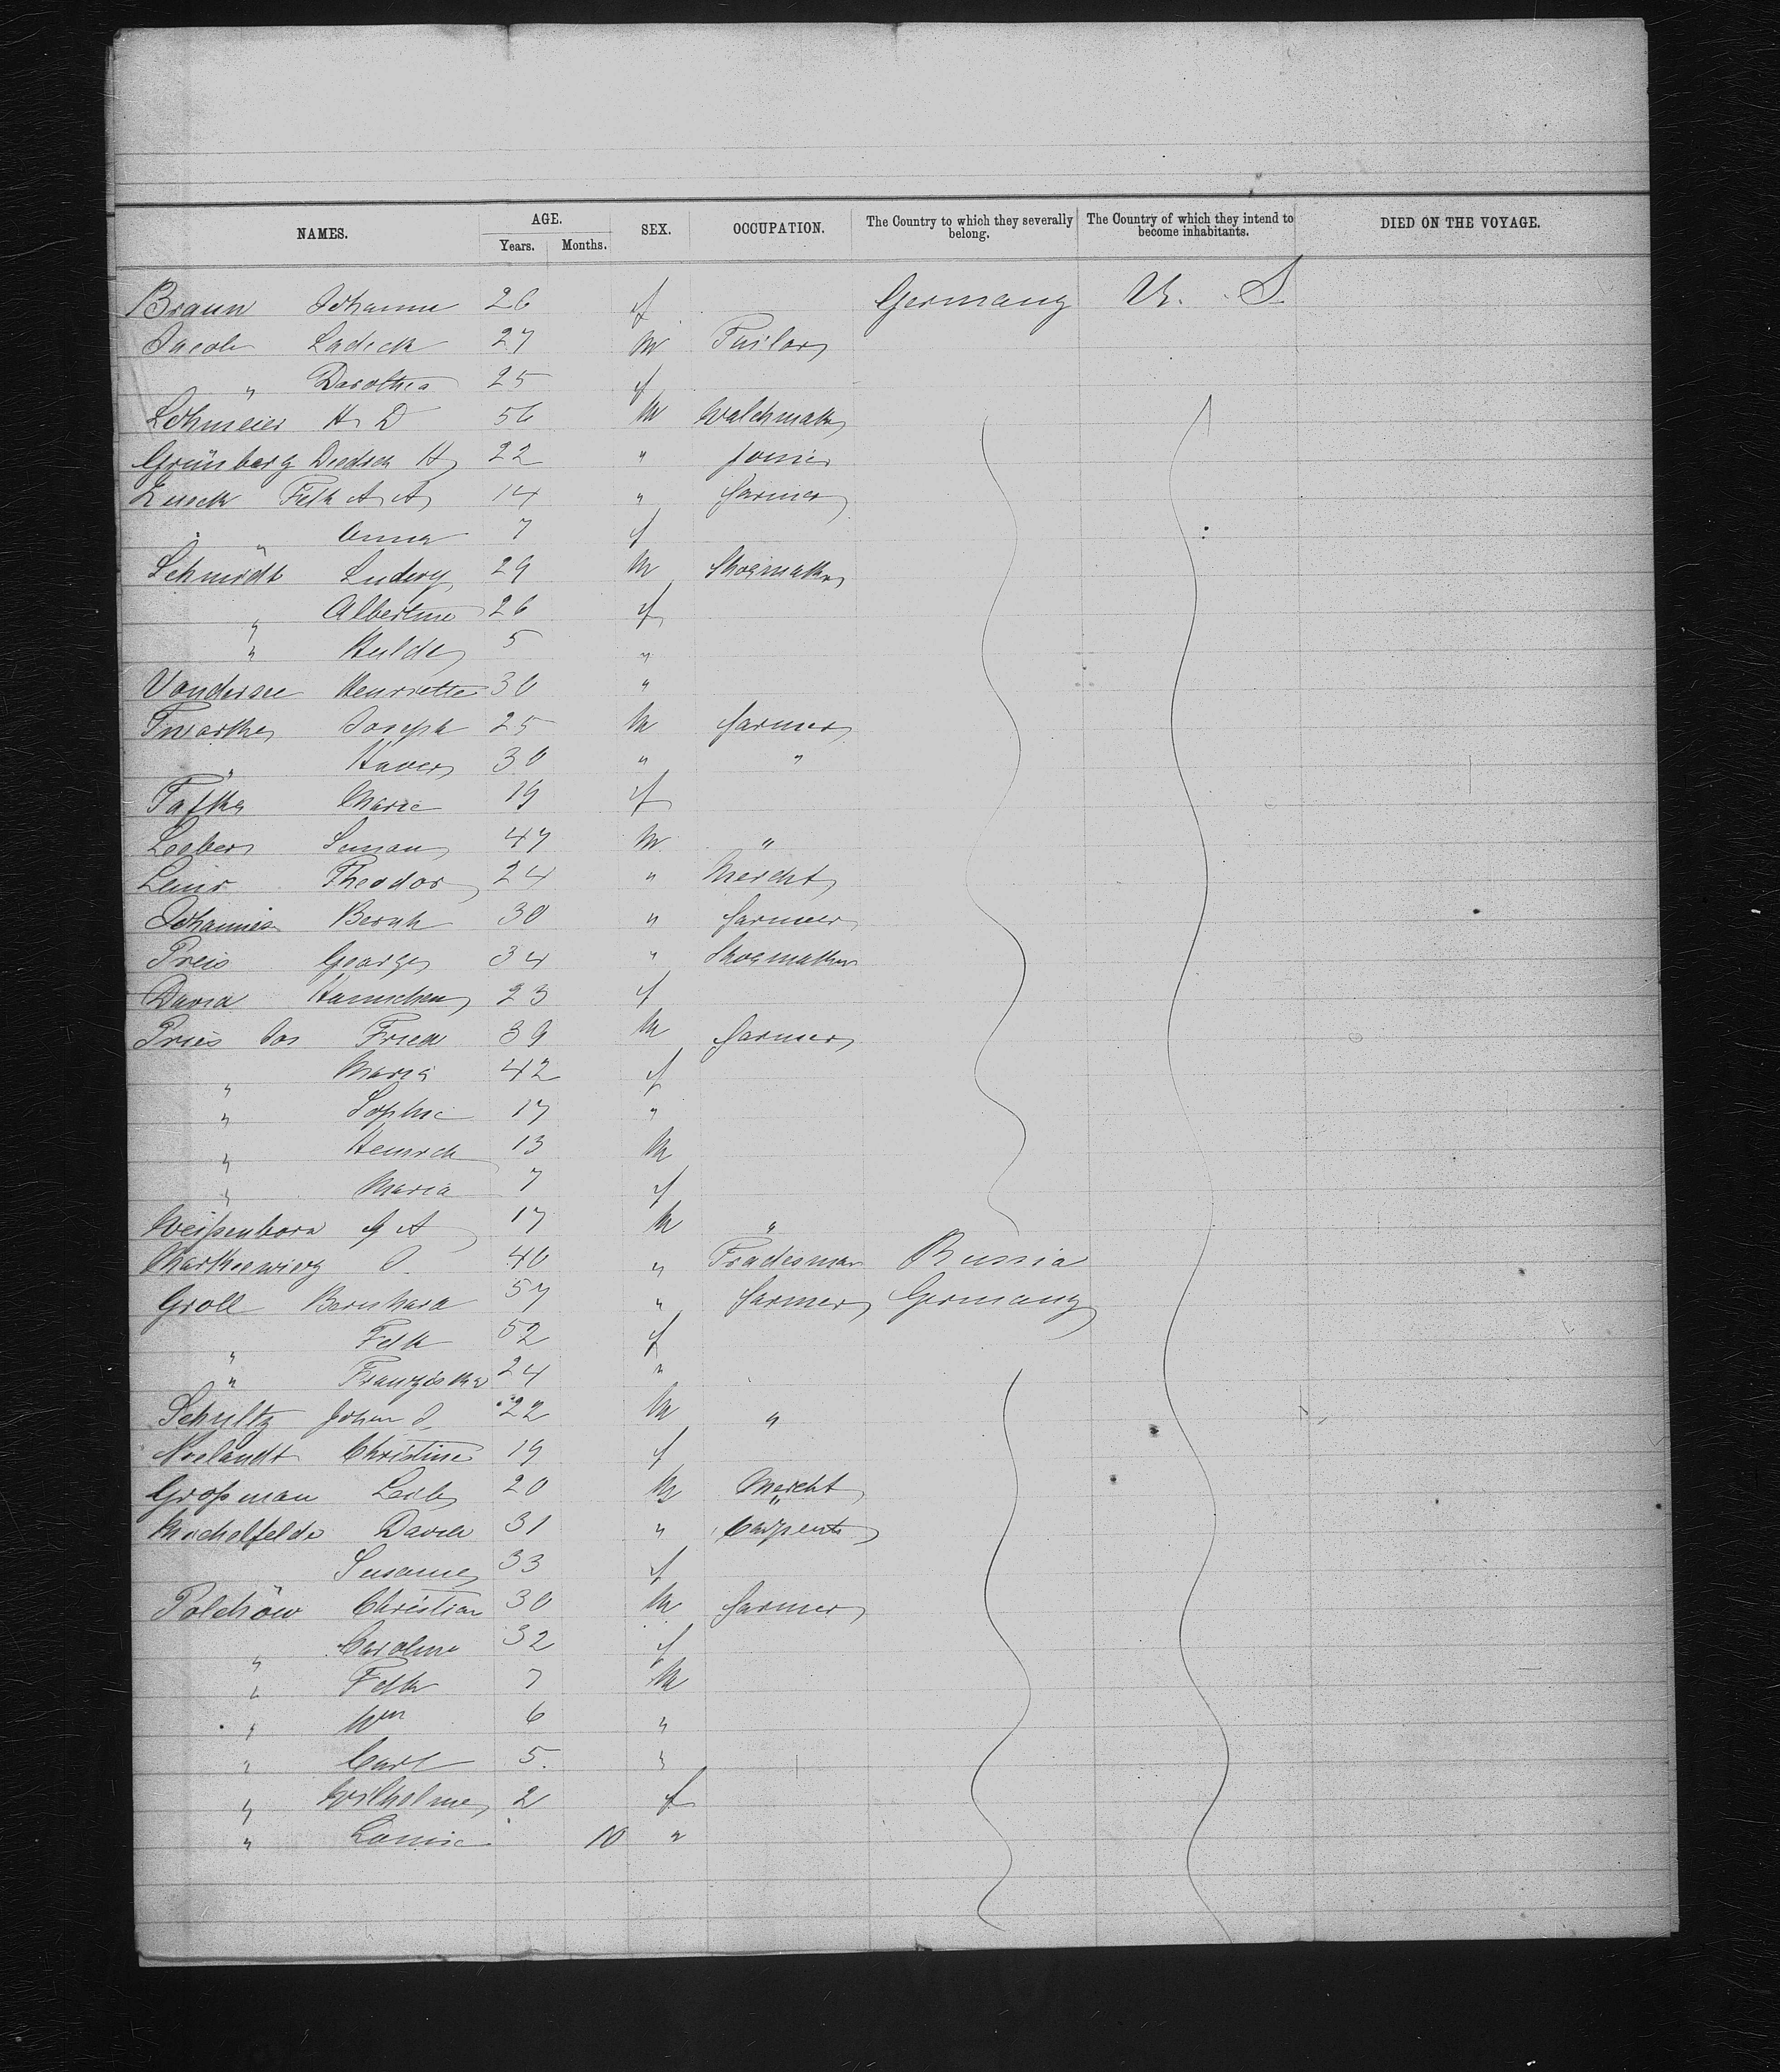 NAMES. AGE. Years. Months. SEX. OCCUPATION. The Country to which they severally belong. The Country of which they intend to become inhabitants. DIED ON THE VOYAGE.
Braun Johanne 26 f Germany U. S.
Jacob Ladeck 27 m Tailor
" Dorothea 25 f
Lohmeier H D 56 m Watchmak
Grünberg Diedrich H 22 " Joiner
A A 14 " farmer
" Anna 7 f
Schmidt Ludwig 29 m Shoemaker
" Albertine 26 f
" Hulda 5 "
Vondersee Henriette 30 "
Joseph 25 m farmer
" Xaver 30 " "
Marie 19 f
Simon 47 m "
Theodor 24 " Mercht
Johannes Bernh 30 " farmer
Preis George 34 " Shoemaker
David Hannchen 23 f
Pries Jos Fried 39 m farmer
" Maria 42 f
" Sophie 17 "
" Heinrich 13 m
" Maria 7 f
Weißenborn G A 17 m "
40 " Tradesman Russia
Groll Bernhard 57 " farmer Germany
" 52 f
" Franziska 24 "
Schultz Johan J 22 m "
Christine 19 f
Großman Leib 20 m Mercht
Michelfelde David 31 " Carpent
" Susanne 33 f
Polchow Christian 30 m farmer
" Caroline 32 f
" 7 m
" Wm 6 "
" Carl 5 "
" Wilhelme 2 f
" Louise 10 "